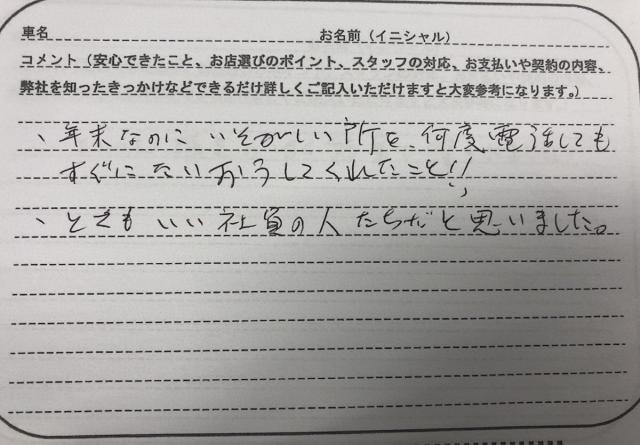 車名 お名前（イニシャル）
コメント（安心できたこと、お店選びのポイント、スタッフの対応、お支払いや契約の内容、
弊社を知ったきっかけなどできるだけ詳しくご記入いただけますと大変参考になります。）
、年末なのにいそがしい所を、何度電話しても
すぐにたいおうしてくれたこと!!
、とてもいい社員の人たちだと思いました。